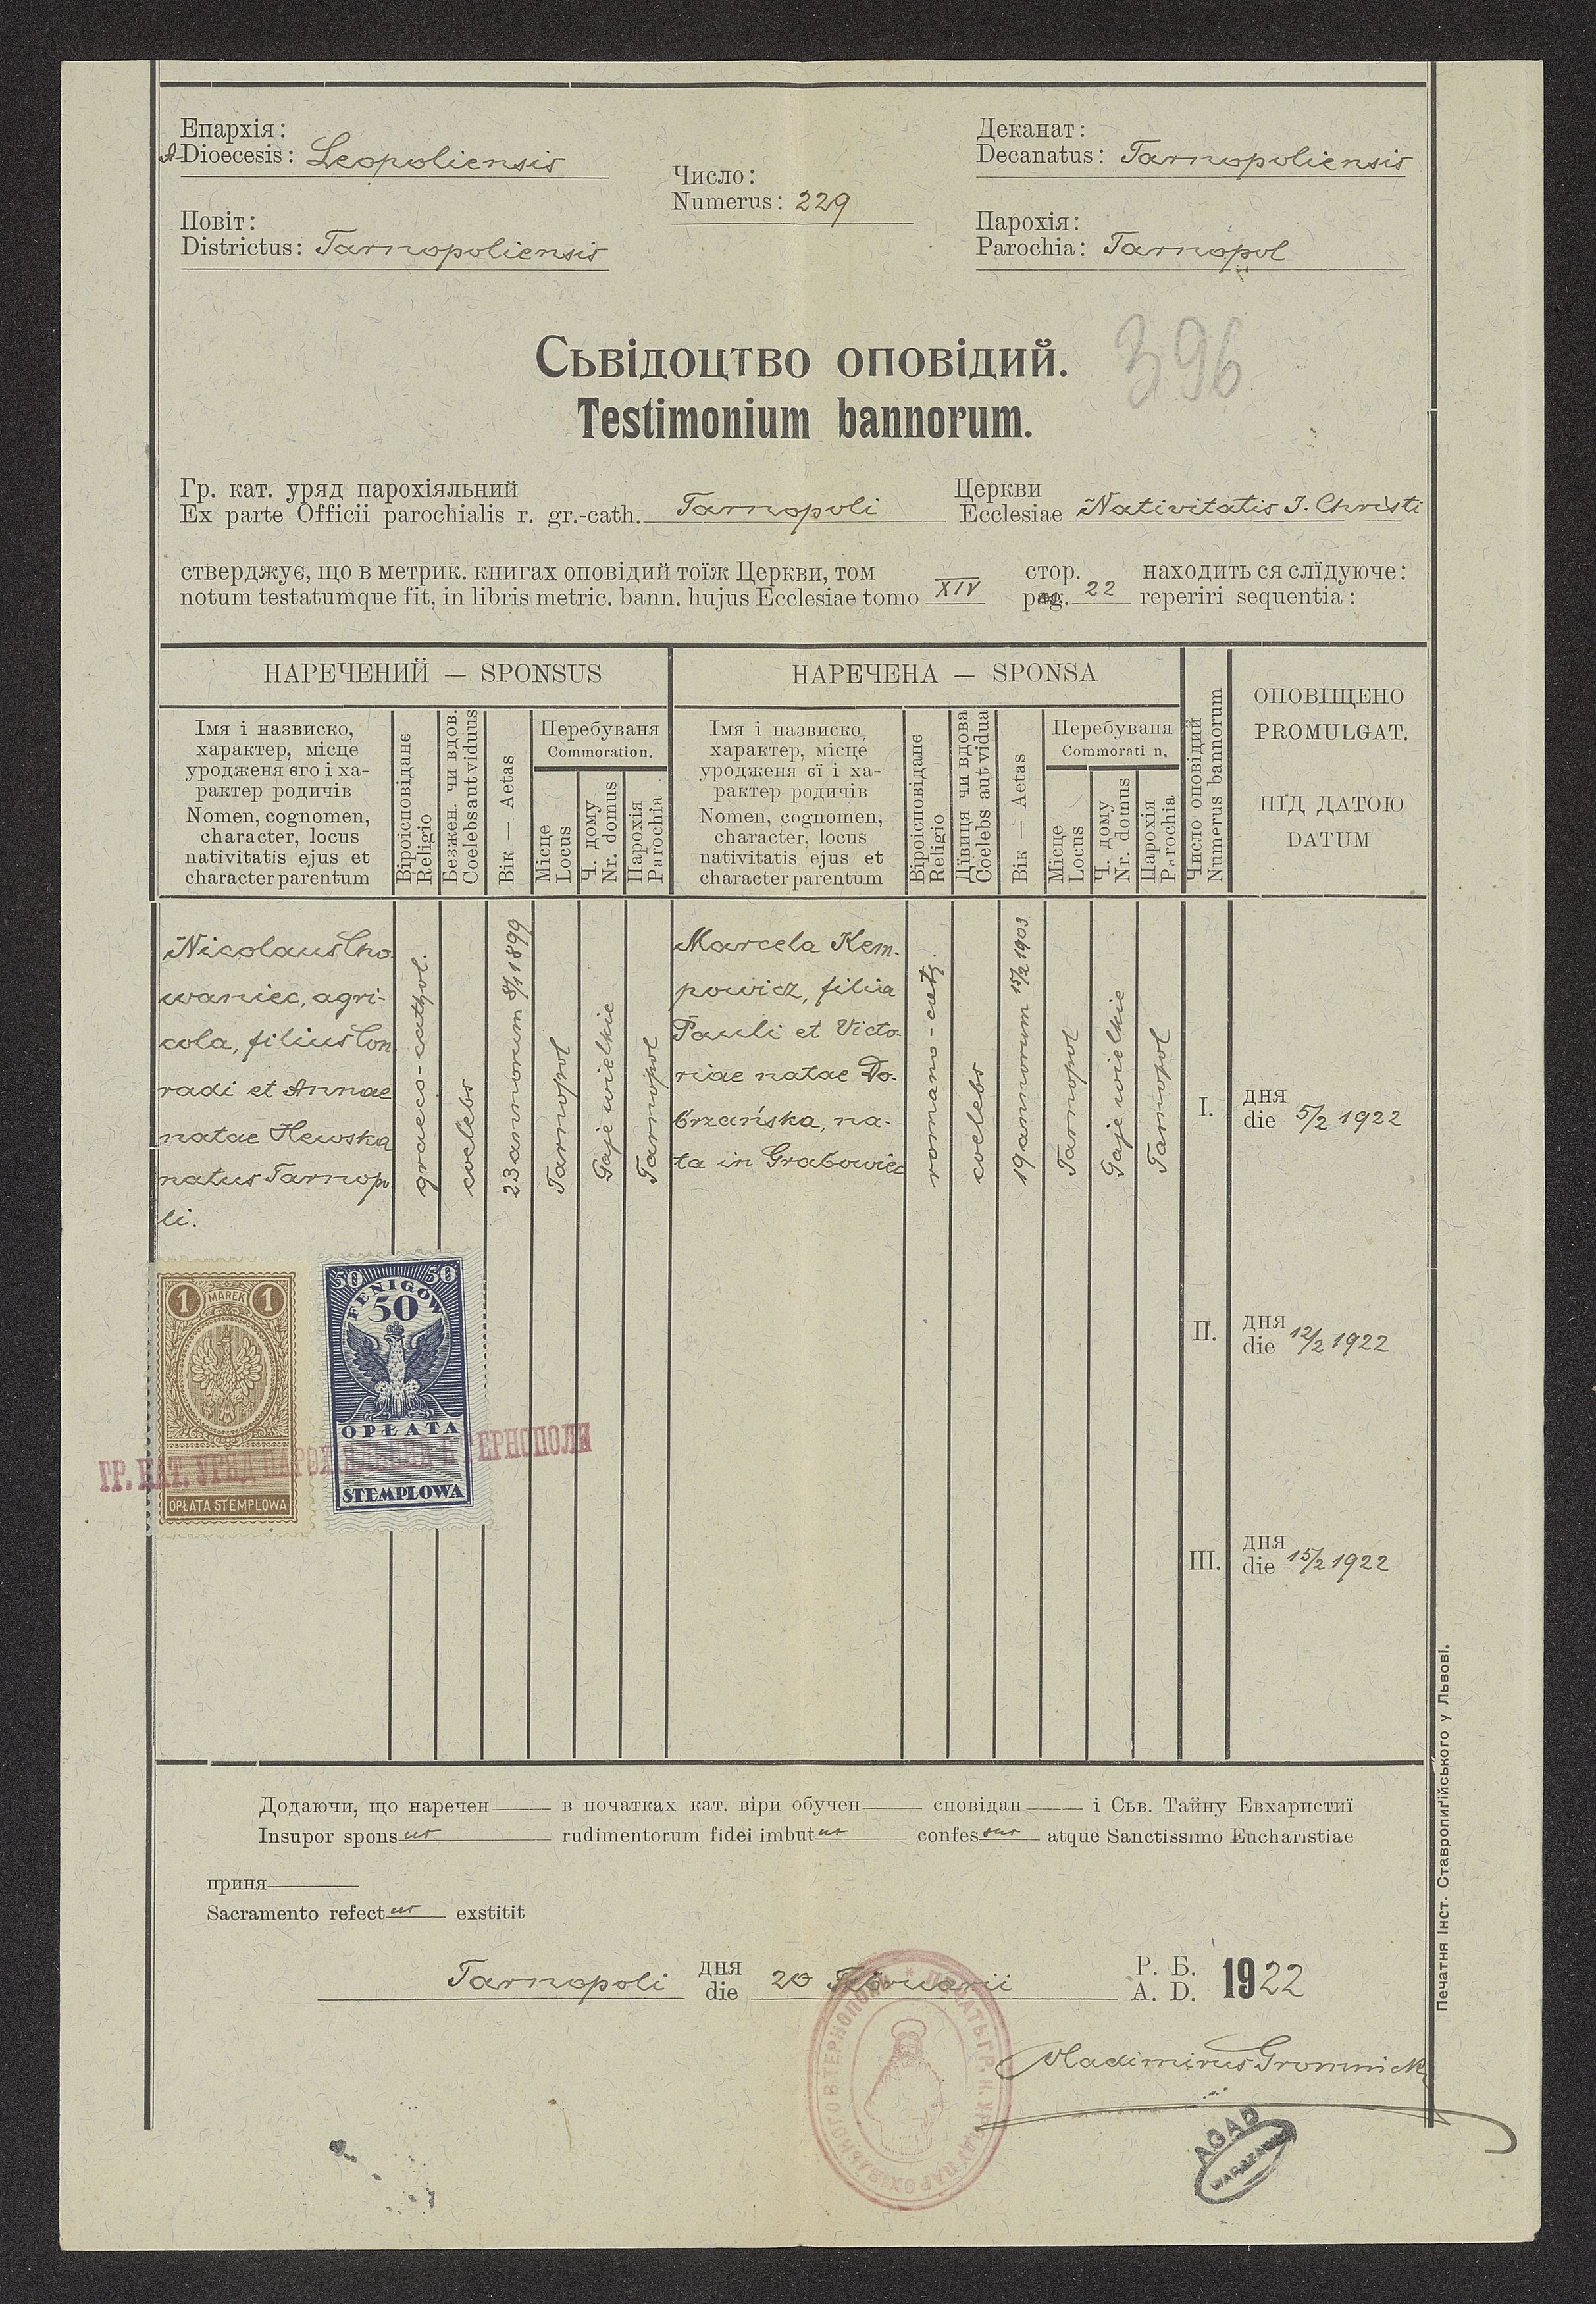 Епархія:
A-Dioecesis: Leopoliensis
Число:
Numerus: 229
Деканат:
Decanatus: Tarnopoliensis
Повіт:
Districtus: Tarnopoliensis
Парохія:
Parochia: Tarnopol
Сьвідоцтво оповідий.
396
Testimonium bannorum.
Гр. кат. уряд парохіяльний
Ex parte Officii parochialis r. gr.-cath. Tarnopoli
Церкви
Ecclesiae Nativitatis J. Christi
стверджує, що в метрик. книгах оповідий тоїж Церкви, том
стор. находить ся слїдуюче:
notum testatumque fit, in libris metric. bann. hujus Ecclesiae tomo XIV pag. 22 reperiri sequentia:
НАРЕЧЕНИЙ — SPONSUS
НАРЕЧЕНА — SPONSA
Імя і назвиско,
характер, місце
уродженя єго і ха-
рактер родичів
Nomen, cognomen,
character, locus
nativitatis ejus et
character parentum
Віроісповіданє
Religio
Безжен. чи вдов.
Coelebs aut viduus
Вік — Aetas
Перебуваня
Commoration.
Місце
Locus
Ч. дому
Nr. domus
Парохія
Parochia
Імя і назвиско,
характер, місце
уродженя єї і ха-
рактер родичів
Nomen, cognomen,
character, locus
nativitatis ejus et
character parentum
Віроісповіданє
Religio
Дївиця чи вдова
Coelebs aut vidua
Вік — Aetas
Перебуваня
Commorati n.
Місце
Locus
Ч. дому
Nr. domus
Парохія
P. rochia
Число оповідий
Numerus bannorum
ОПОВІЩЕНО
PROMULGAT.
ПІД ДАТОЮ
DATUM
Nicolaus Cho
waniec, agri-
cola, filius Con
radi et Annae
natae Hewska
natus Tarnopo
li.
graeco-cathol.
coelebs
23 annorum 8/1 1899
Tarnopol
Gaje wielkie
Tarnopol
Marcela Kem-
powicz, filia
Pauli et Victo-
riae natae Do-
brzańska, na-
ta in Grabowiec
romano-cath.
coelebs
19 annorum 15/2 1903
Tarnopol
Gaje wielkie
Tarnopol
I.
дня
die 5/2 1922
II.
дня
die 12/2 1922
III.
дня
die 15/2 1922
1 MAREK 1
OPŁATA STEMPLOWA
50 50
FENIGÓW
50
OPŁATA
STEMPLOWA
ГР. КАТ. УРЯД ПАРОХІЯЛЬНИЙ В ТЕРНОПОЛИ
Додаючи, що наречен в початках кат. віри обучен сповідан і Сьв. Тайну Евхаристиї
Insupor sponsus rudimentorum fidei imbutus confessus atque Sanctissimo Eucharistiae
приня
Sacramento refectus exstitit
Tarnopoli
дня
die 20 Februarii
Р. Б.
A. D. 1922
ПЕЧАТЬ ГР. К. УРЯДУ ПАРОХІЯЛЬНОГО В ТЕРНОПОЛИ
Vladimirus Gromnicki
AGAD
WARSZAWA
Печатня Інст. Ставропигійського у Львові.